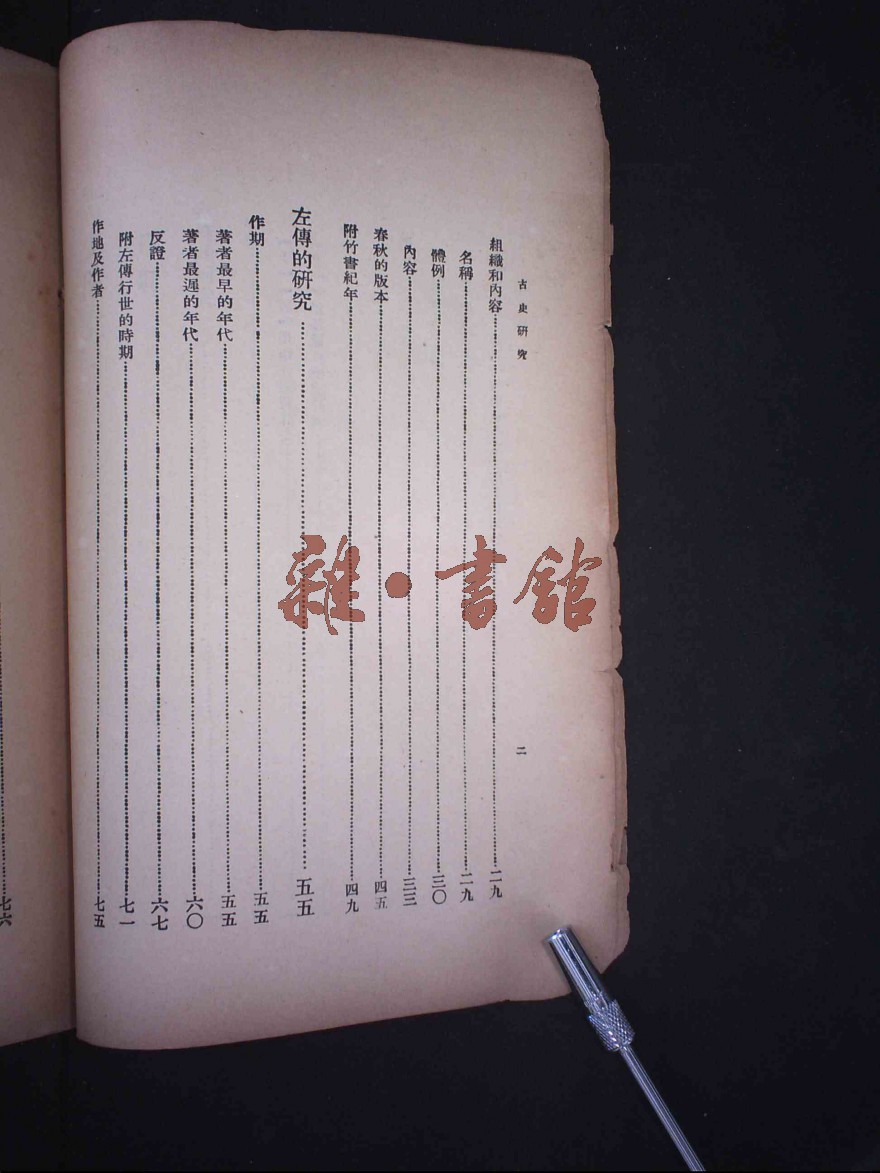 古史研究
二
組織和內容……二九
名稱……二九
體例……三〇
內容……三三
春秋的版本……四五
附竹書紀年……四九
左傳的研究……五五
作期……五五
著者最早的年代……五五
著者最遲的年代……六〇
反證……六七
附左傳行世的時期……七一
作地及作者……七五
七六
雜·書館